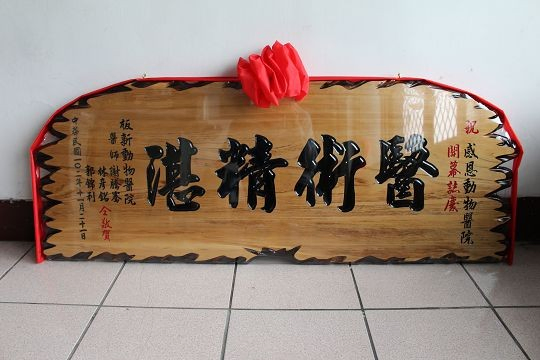 祝
感恩動物醫院
開幕誌慶
醫術精湛
板新動物醫院
醫師謝勝希
林彥銘
郭錦利
仝敬賀
中華民國一0二年十一月二十一日